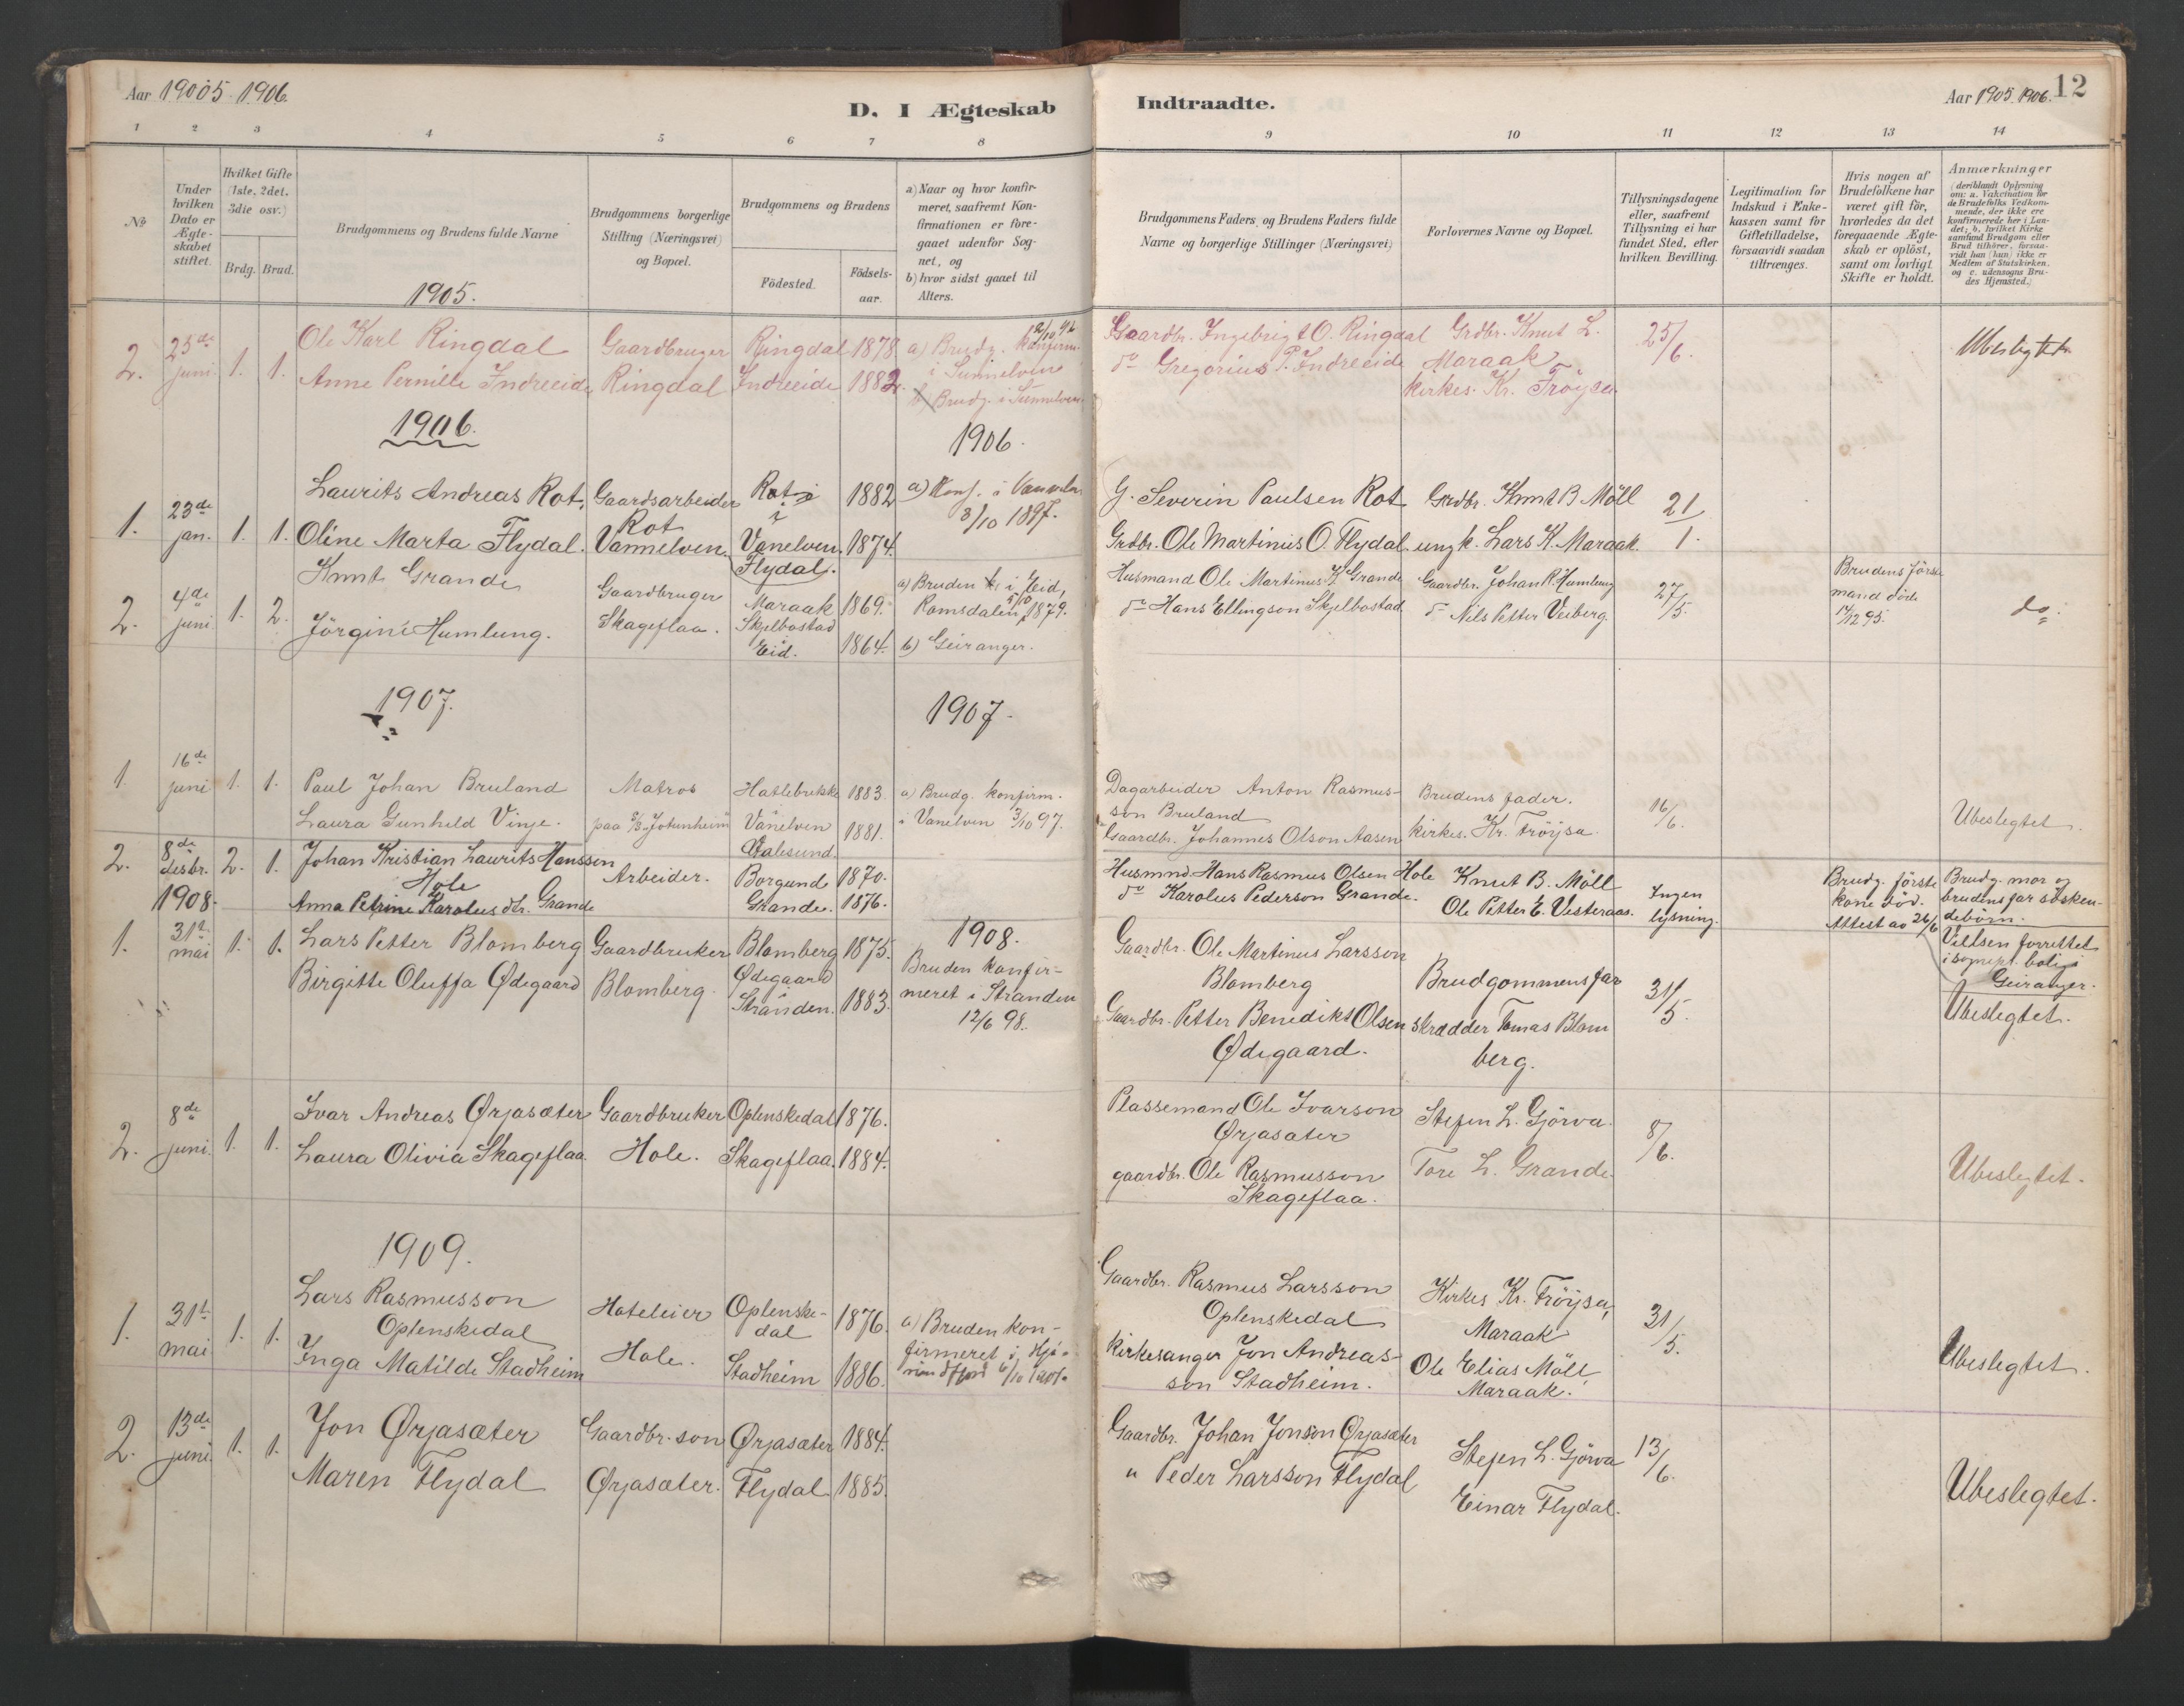 Aar 19005-1906.
D. I Ægteskab
Indtraadte.
Aar 1905. 1906.
12
1 2 3 4 5 6 7 8 9 10 11 12 13 14
No
Under hvilken Dato er Ægteskabet stiftet.
Hvilket Gifte (1ste, 2det, 3die osv.)
Brdg. Brud.
Brudgommens og Brudens fulde Navne
Brudgommens borgerlige Stilling (Næringsvei) og Bopæl.
Brudgommens og Brudens
Födested.
Födsels-aar.
a) Naar og hvor konfirmeret, saafremt Konfirmationen er foregaaet udenfor Sognet, og
b) hvor sidst gaaet til Alters.
Brudgommens Faders og Brudens Faders fulde Navne og borgerlige Stillinger (Næringsvei)
Forlovernes Navne og Bopæl.
Tillysningsdagene eller, saafremt Tillysning ei har fundet Sted, efter hvilken Bevilling.
Legitimation for Indskud i Enkekassen samt for Giftetilladelse, forsaavidt saadan tiltrænges.
Hvis nogen af Brudefolkene har været gift för, hvorledes da det foregaaende Ægteskab er oplöst, samt om lovligt Skifte er holdt.
Anmærkninger (deriblandt Oplysning om: a. Vakcination for de Brudefolks Vedkommende, der ikke ere konfirmerede her i Landet; b. hvilket Kirkesamfund Brudgom eller Brud tilhörer, forsaavidt han (hun) ikke er Medlem af Statskirken, og c. udensogns Brudes Hjemsted.)
1905.
2. 23de juni 1. 1.
Ole Karl Ringdal Gaardbruger Ringdal 1878
Anne Pernille Indreeide Ringdal Indreeide 1882.
a) Brudg. konfirm. i Sunnelven
b) Brudg. i Sunnelven.
Gaardbr. Ingebrigt O. Ringdal
do Gregorius P. Indreeide
Grdbr. Knut L. Maraak
kirkes. Kr. Fröysa.
25/6.
Ubeslegtet
1906.
1906.
1. 23de jan. 1. 1.
Laurits Andreas Rot, Gaardsarbeider Rot i 1882
Oline Marta Flydal. Rot Vannelven. Vanelven. Flydal. 1874.
a) Konf. i Vanelven 3/10 1897.
G. Severin Paulsen Rot
Grdbr. Ole Martinus O. Flydal.
Grdbr. Knut B. Möll
ungk. Lars K. Maraak.
21/1.
2. 4de juni 1. 2.
Knut Grande Gaardbruger Maraak 1869.
Jörgine Humlung. Skageflaa. Skjelbostad i Eid. 1864.
a) Bruden i Eid, Romsdalen 5/10 1879.
b) Geiranger.
Husmand Ole Martinus K. Grande
do Hans Ellingson Skjelbostad
Gaardbr. Johan R. Humlung
do Nils Petter Verberg.
27/5.
Brudens förste mand döde 17/12 95.
do.
1907.
1907.
1 16de juni 1. 1.
Paul Johan Bruland Matros Hatlebrekke 1883
Laura Gunhild Vinje. paa S/S "Jotunheim" Vanelven 1881.
Aalesund.
a) Brudg. konfirm. i Vanelven 3/10 97.
Dagarbeider Anton Rasmusson Bruland
Gaardbr. Johannes Olson Aasen
Brudens fader.
kirkes. Kr. Fröysa.
16/6.
Ubeslegtet.
2. 8de desbr. 2. 1.
Johan Kristian Laurits Hansson Hole Arbeider. Borgund 1870.
Anna Petrine Karolusdtr. Grande Grande. 1876.
Husmnd. Hans Rasmus Olsen Hole
do Karolus Pederson Grande.
Knut B. Möll
Ole Petter E. Vesteraas.
Ingen lysning.
Brudg. förste kone död. Attest av 26/6
Brudg. mor og brudens far söskendebörn.
Vielsen forrettet i sognepr. bolig i Geiranger.
1908.
1908.
1. 31te mai 1. 1.
Lars Petter Blomberg Gaardbruker Blomberg 1875.
Birgitte Oluffa Ødegaard Blomberg. Ødegaard i Stranden. 1883.
Bruden konfirmeret i Stranden 12/6 98.
Gaardbr. Ole Martinus Larsson Blomberg
Gaardbr. Petter Benedikt Olsen Ødegaard.
Brudgommens far
skrædder Tomas Blomberg.
31/5.
Ubeslegtet.
2. 8de juni 1. 1.
Ivar Andreas Ørjasæter Gaardbruker Oplenskedal 1876.
Laura Olivia Skageflaa. Hole. Skageflaa. 1884.
Plassemand Ole Ivarson Ørjasæter
gaardbr. Ole Rasmusson Skageflaa.
Stefen L. Gjörva.
Tore L. Grande.
8/6.
Ubeslegtet.
1909.
1. 31te mai 1. 1.
Lars Rasmusson Oplenskedal Hoteleier Oplenskedal 1876.
Inga Matilde Stadheim Hole. Stadheim 1886.
a) Bruden konfirmeret i Hjörundfjord 6/10 1901.
Gaardbr. Rasmus Larsson Oplenskedal
Kirkesanger Jon Andreasson Stadheim.
Kirkes Kr. Fröysa, Maraak
Ole Elias Möll, Maraak.
31/5.
Ubeslegtet.
2. 13de juni 1. 1.
Jon Ørjasæter Gaardbr. son Ørjasæter 1884.
Maren Flydal Ørjasæter. Flydal 1885.
Gaardbr. Johan Jonson Ørjasæter
" Peder Larsson Flydal
Stefen L. Gjörva
Einar Flydal.
13/6.
Ubeslegtet.